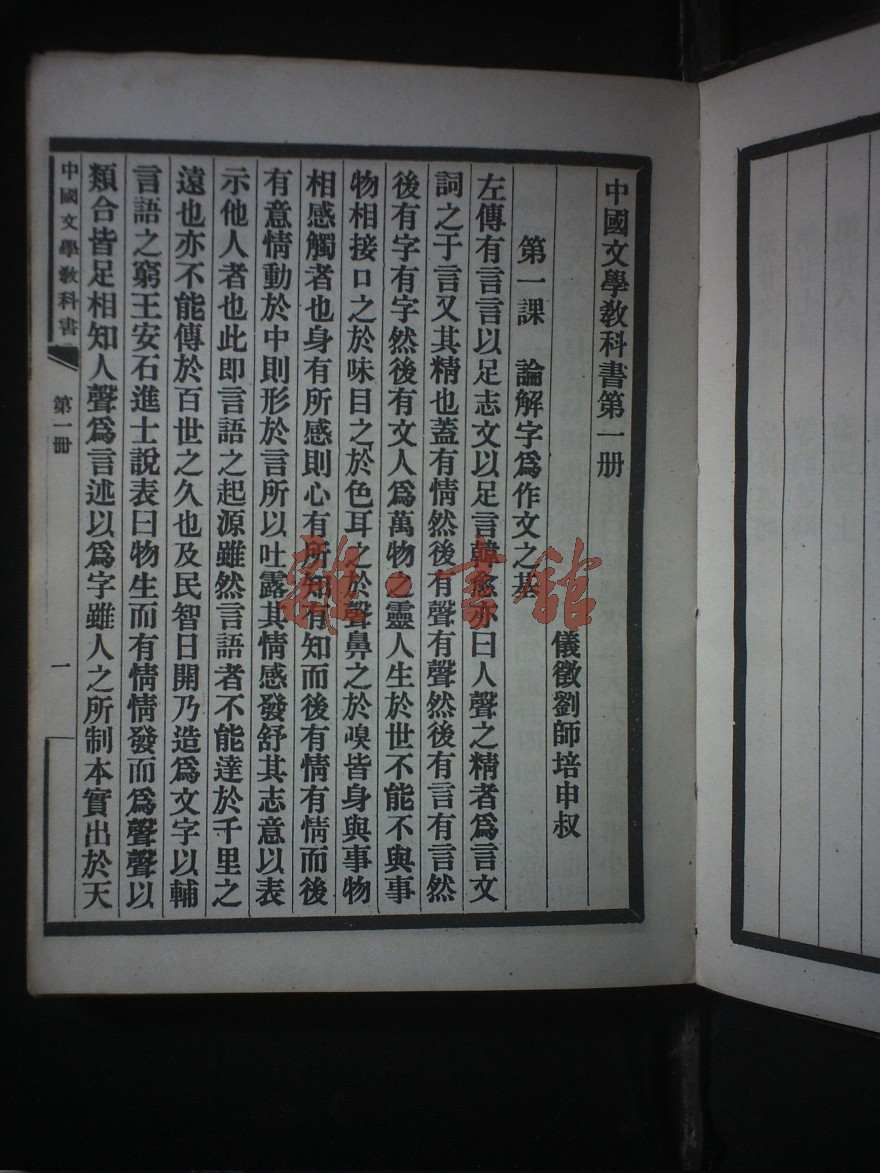 中國文學教科書第一册
儀徵劉師培申叔
第一課　論解字爲作文之基
左傳有言言以足志文以足言韓愈亦曰人聲之精者爲言文
詞之于言又其精也蓋有情然後有聲有聲然後有言有言然
後有字有字然後有文人爲萬物之靈人生於世不能不與事
物相接口之於味目之於色耳之於聲鼻之於嗅皆身與事物
相感觸者也身有所感則心有所知有知而後有情有情而後
有意情動於中則形於言所以吐露其情感發舒其志意以表
示他人者也此即言語之起源雖然言語者不能達於千里之
遠也亦不能傳於百世之久也及民智日開乃造爲文字以輔
言語之窮王安石進士說表曰物生而有情情發而爲聲聲以
類合皆足相知人聲爲言述以爲字雖人之所制本實出於天
中國文學教科書
第一冊
一
雜·書館